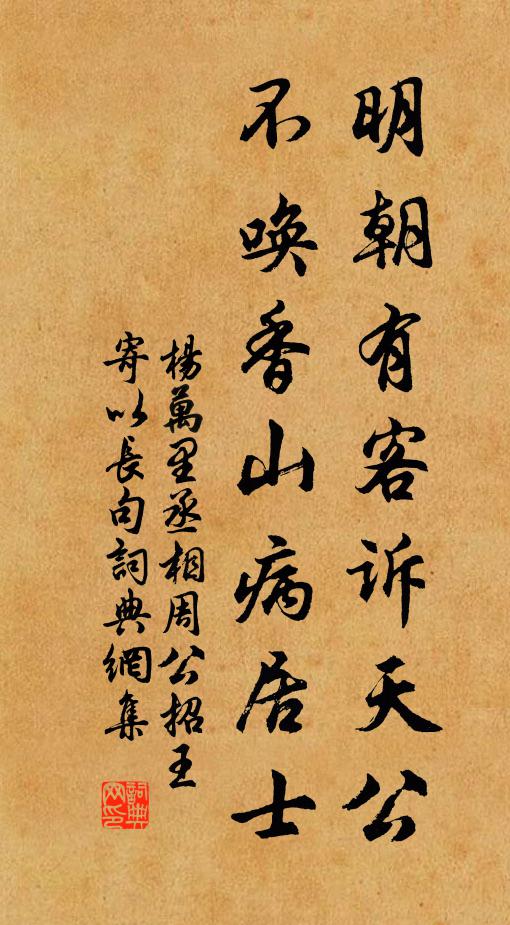 明朝有客诉天公
不唤香山病居士
楊萬里丞相周公招王
寄以長句詞典網集
詞典网印